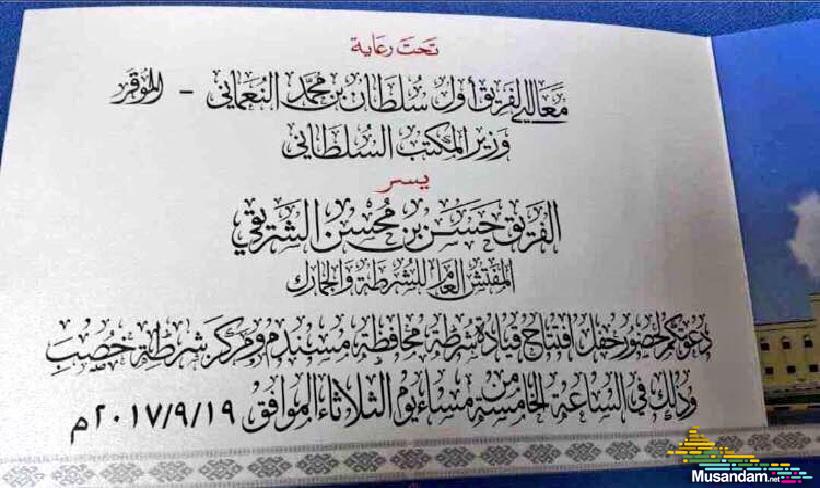 تحت رعاية
معالي الفريق أول سلطان بن محمد النعماني - الموقر
وزير المكتب السلطاني
يسر
الفريق حسن بن محسن الشريقي
المفتش العام للشرطة والجمارك
دعوتكم لحضور حفل افتتاح قيادة شرطة محافظة مسندم ومركز شرطة خصب
وذلك في الساعة الخامسة من مساء يوم الثلاثاء الموافق ٢٠١٧/٩/١٩م
Musandam.net